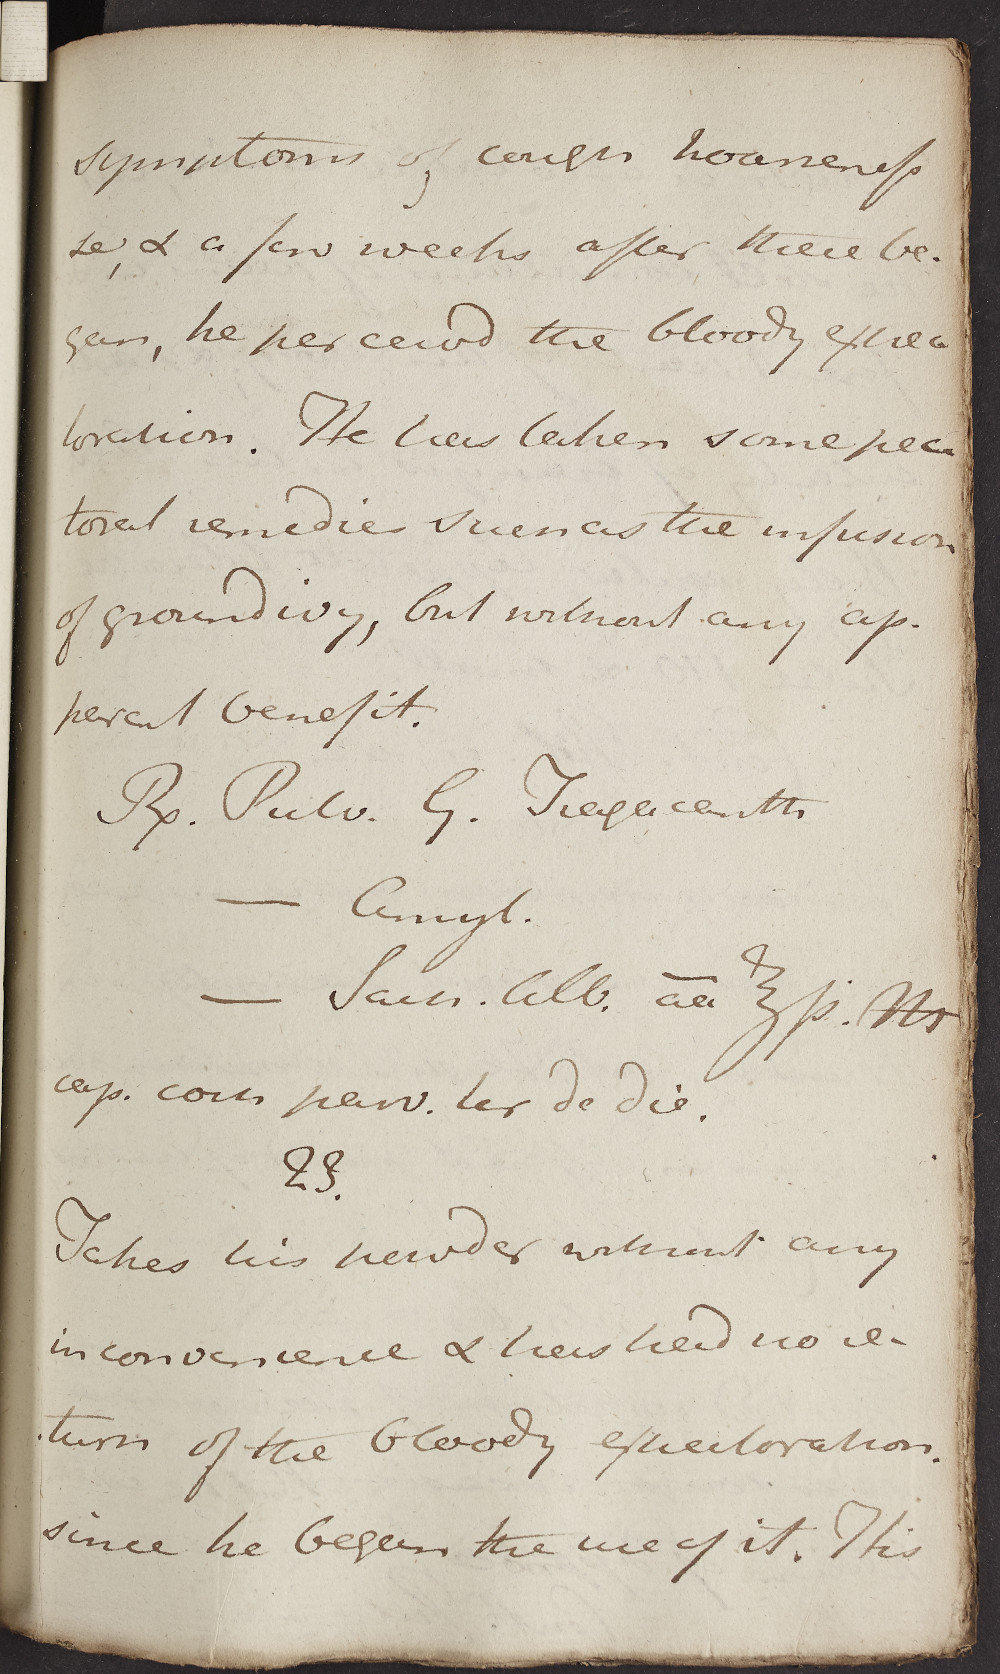 symptoms of cough hoarseness
&, & a few weeks after these be-
gan, he perceivd the bloody expec
toration. He has taken some pec
toral remedies such as the infusion
of ground ivy, but without any ap-
parent benefit.
Rx. Pulv. G. Tragacanth
— Amyl.
— Sacch. Alb. āā ℥ß. M
cap. coch parv. ter de die.
23.
Takes his powder without any
inconvenience & has had no re-
turn of the bloody expectoration.
since he began the use of it. This